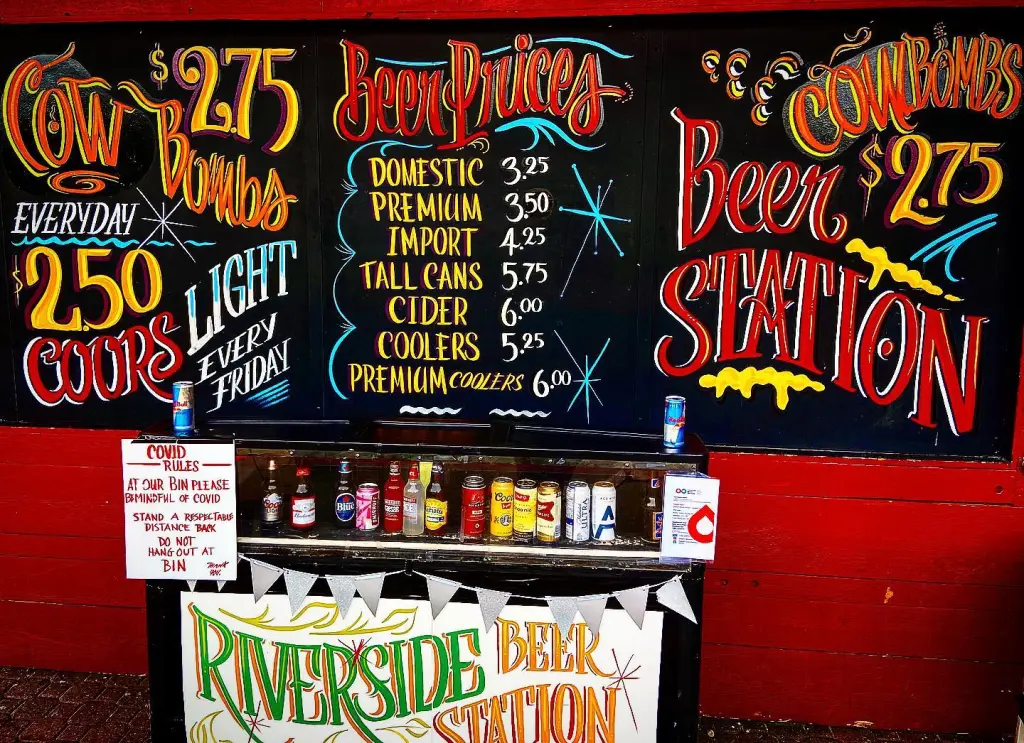 COW
BOMBS
$2.75
EVERYDAY
$2.50
COORS
LIGHT
EVERY
FRIDAY
Beer Prices
DOMESTIC 3.25
PREMIUM 3.50
IMPORT 4.25
TALL CANS 5.75
CIDER 6.00
COOLERS 5.25
PREMIUM COOLERS 6.00
COWBOMBS
$2.75
Beer
STATION
COVID
RULES
AT OUR BIN PLEASE
BE MINDFUL OF COVID
STAND A RESPECTABLE
DISTANCE BACK
DO NOT
HANG OUT AT
BIN
Blue
Coors
ULTRA
RIVERSIDE
BEER
STATION